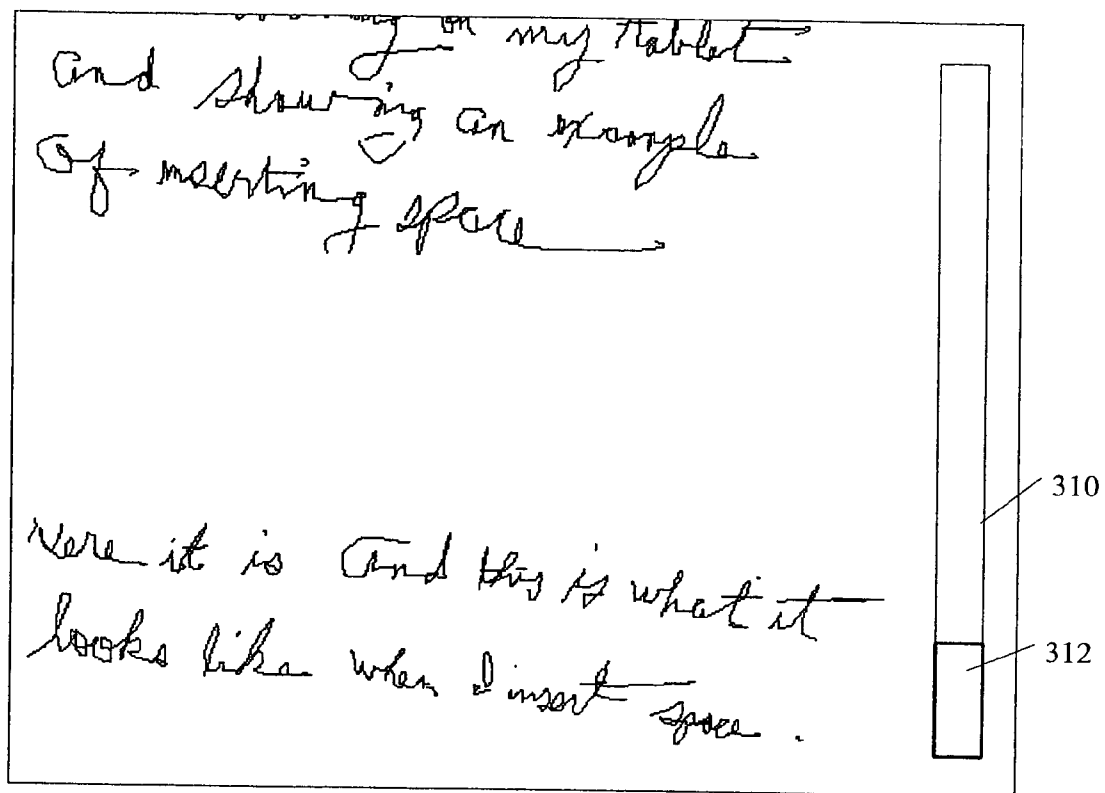 on my tablet
and showing an example
Of inserting space
310
Here it is and this is what it
312
looks like when I insert space.